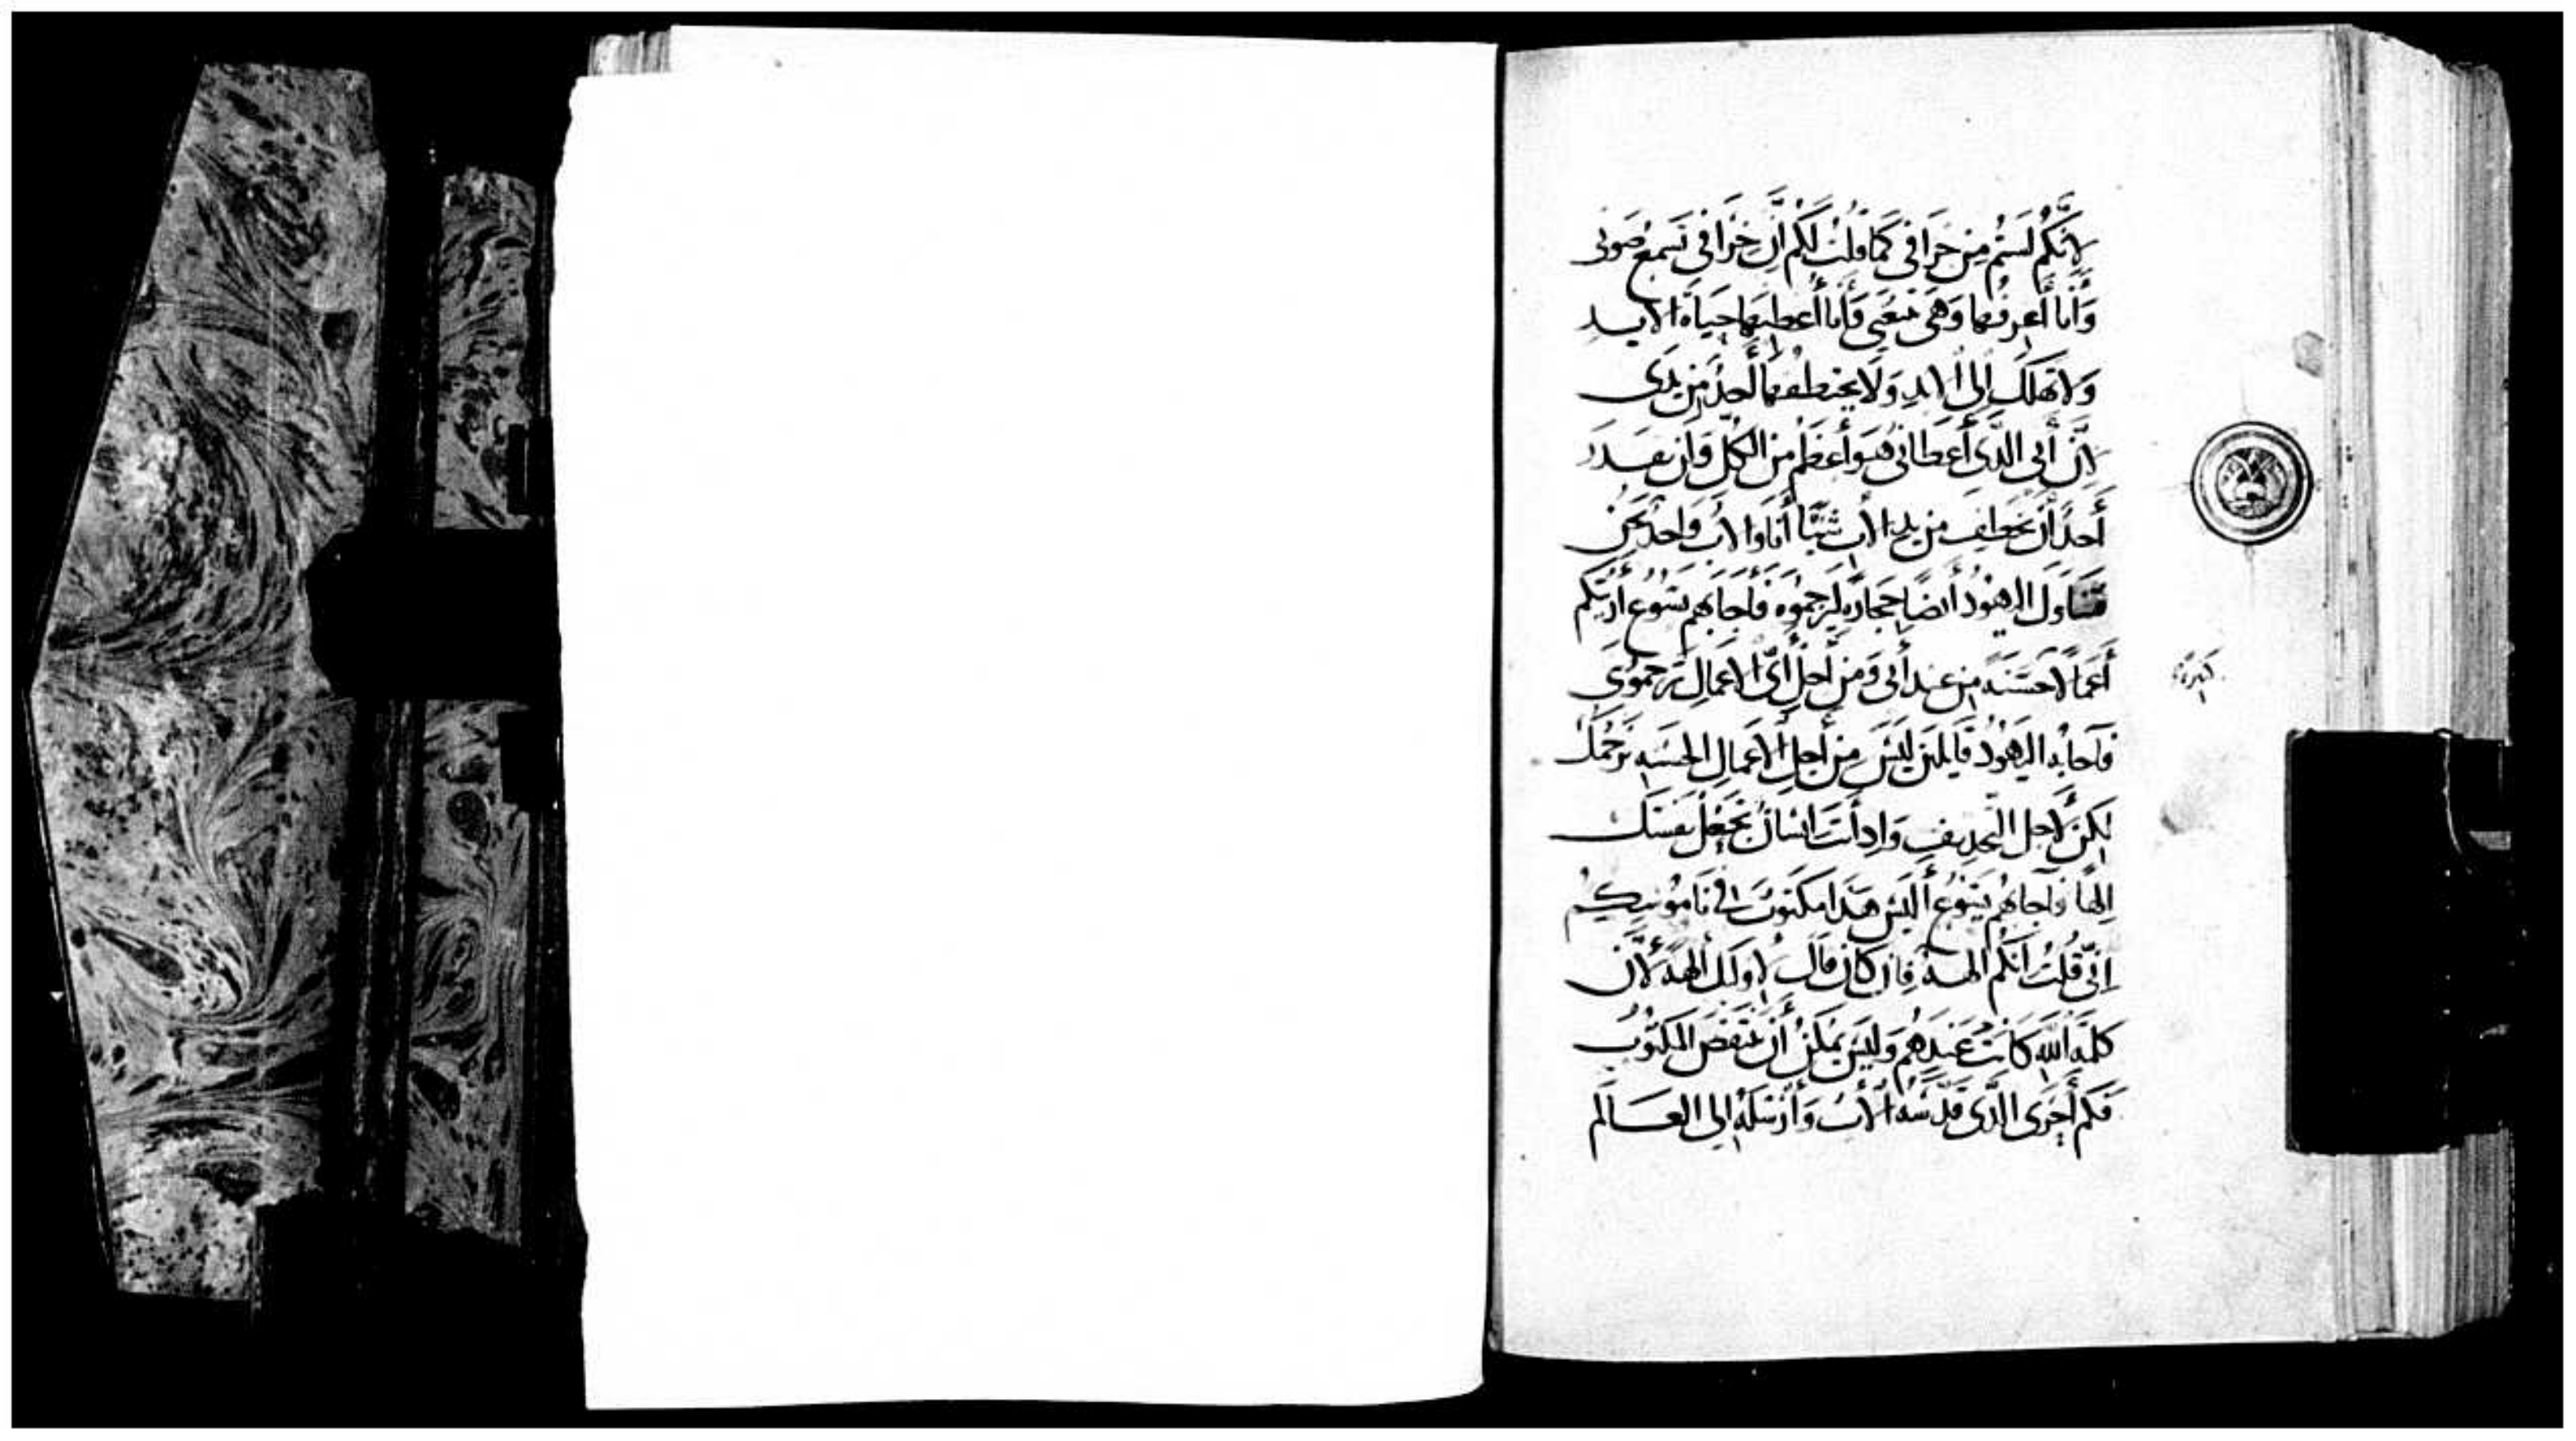 لانَّكُم لَستُم مِن خرَافى كَمَا قُلتُ لَكُم اَنِّ خِرَافى تَسمع صَوتى
وَأَنَا أَعرِفُها وَهىَ تتبعُنى وَأَنا أُعطيهَا حيَاةَ الابد
وَلا تَهلَك إلى الابدِ وَلَا يختطفهَا أَحدٌ مِن يَدى
لانّ أَبى الَّذى أَعطَانى هُوَ أَعظَم من الكُلّ وَلن يقدر
أَحدٌ أَن يخطِف من يد الاب شَيئًا أَنَا وَالابُ وَاحد نَحن
فتنَاوَل اليهُودُ أيضًا حجَارةً ليَرجمُوه فَأَجابهم يسُوع أَرَيتكم
أَعمَالاً حسَنة من عند أَبى وَمن أَجل أَىّ الاعمَالِ تَرجمُونى
فَأَجابه اليَهُودُ قَايلين ليسَ من أَجل الاعمَالِ الحَسَنه نَرجمُكَ
لكن لاجل التجديفِ وَإذ أَنتَ انسَان تجعَل نفسَك
إِلهًا فأجابهُم يَسُوع أَليسَ هذَا مكتوبٌ فى نَامُوسكُم
إنّى قُلتُ انّكُم الهة فان كانَ قال لاوليك الهة لانّ
كلمَة الله كَانَت عندهُم وَليسَ يمكنُ أَن ينتقض المكتُوبُ
فكم أَحرَى الذّى قدّسَهُ الابُ وَأَرسَلَهُ إلى العَالَم
كثيرة